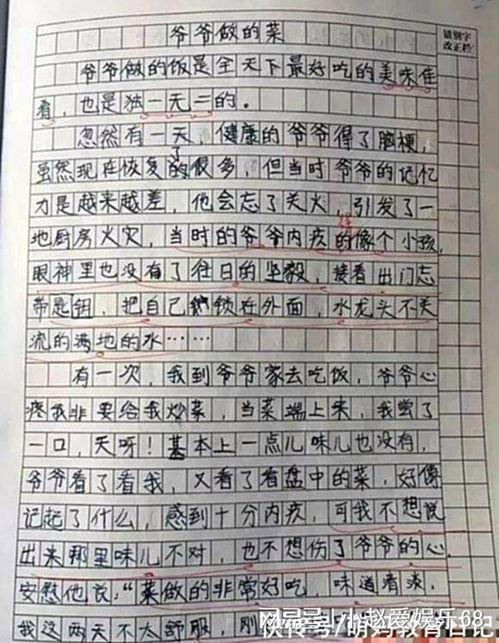 爷爷做的菜
错别字
改正栏
爷爷做的饭是全天下最好吃的美味佳
肴，也是独一无二的。
忽然有一天，健康的爷爷得了脑梗，
虽然现在恢复的很多，但当时爷爷的记忆
力是越来越差，他会忘了关火，引发了一
地厨房火灾，当时的爷爷内疚的像个小孩，
眼神里也没有了往日的坚毅，接着出门忘
带匙钥，把自己锁在外面，水龙头不关
流的满地的水……
有一次，我到爷爷家去吃饭，爷爷心
疼我非要给我炒菜，当菜端上来，我尝了
一口，天呀！基本上一点儿味儿也没有，
爷爷看了看我，又看了看盘中的菜，好像
记起了什么，感到十分内疚，可我不想说
出来那里味儿不对，也不想伤了爷爷的心，
安慰他说：“菜做的非常好吃，味道有淡，
我这两天不太舒服，刚
网易号小小赵爱娱乐68